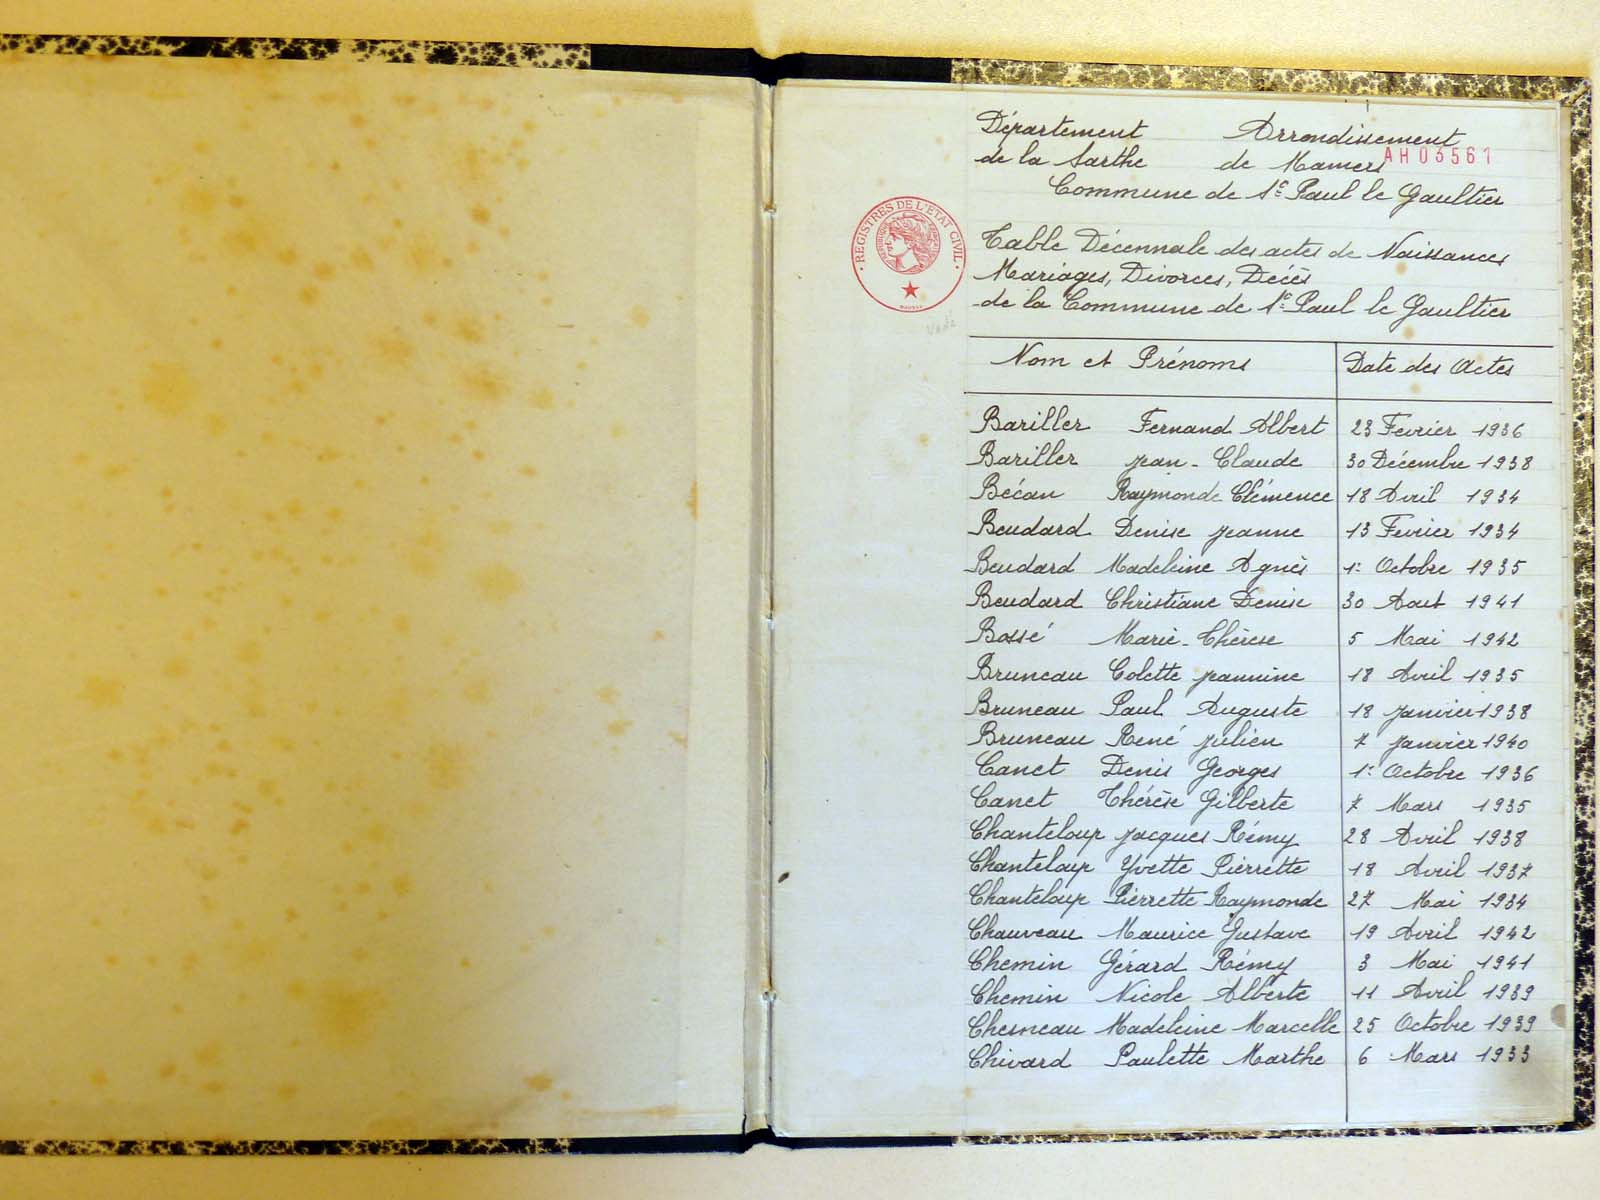 Département Arrondissement
de la Sarthe de Mamers
AH03561
Commune de St Paul le Gaultier
REGISTRES DE L'ETAT CIVIL
Table Décennale des actes de Naissances
Mariages, Divorces, Décès
de la Commune de St Paul le Gaultier
Nom et Prénoms Date des Actes
Bariller Fernand Albert 23 Fevrier 1936
Bariller Jean-Claude 30 Décembre 1938
Becan Raymonde Clémence 18 Avril 1934
Beudard Denise Jeanne 13 Fevrier 1934
Beudard Madeleine Agnès 1er Octobre 1935
Beudard Christiane Denise 30 Aout 1941
Bossé Marie-Thérèse 5 Mai 1942
Bruneau Colette Jeannine 18 Avril 1935
Bruneau Paul Auguste 18 Janvier 1938
Bruneau René Julien 7 Janvier 1940
Canet Denis Georges 1er Octobre 1936
Canet Thérèse Gilberte 7 Mars 1935
Chanteloup Jacques Rémy 28 Avril 1938
Chanteloup Yvette Pierrette 18 Avril 1937
Chanteloup Pierrette Raymonde 27 Mai 1934
Chauveau Maurice Gustave 19 Avril 1942
Chemin Gérard Rémy 3 Mai 1941
Chemin Nicole Alberte 11 Avril 1939
Chesneau Madeleine Marcelle 25 Octobre 1939
Chivard Paulette Marthe 6 Mars 1933